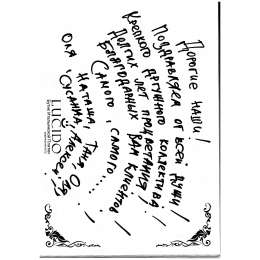 Дорогие наши!
Поздравляем от всей души!
Крепкого дружного коллектива!
Долгих лет процветания!
Благодарных Вам клиентов!
Самого, самого.....!
Наташа, Таня, Оля,
Сусанна,
Оля
LUCIDO